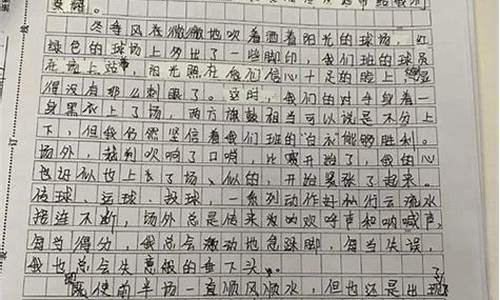 冬季风在微微地吹着洒着阳光的球场,红
绿色的球场上多出了一些脚印,我们班的球员
在场上站,阳光照在他们信心十足的脸上
得没有那么刺眼了。这时,我们的对手身着一
身黑衣上了场,两方旗鼓相当可以说是不分上
下,但我仍然坚信着我们班的“白衣能够胜利。
场外,裁判吹响了口哨,比赛开始了,我的心
也迟似也上去了场、似的,开始紧张了起来。
传球、运球、投球,一系列动作好似行云流水
接连不断,场外总是传来为欢呼声和呐喊声,
每当得分,我总会激动地急跺脚,每当失误,
我也总会失意般的垂下头。
既使前半场一直顺风顺水,但也还是出现